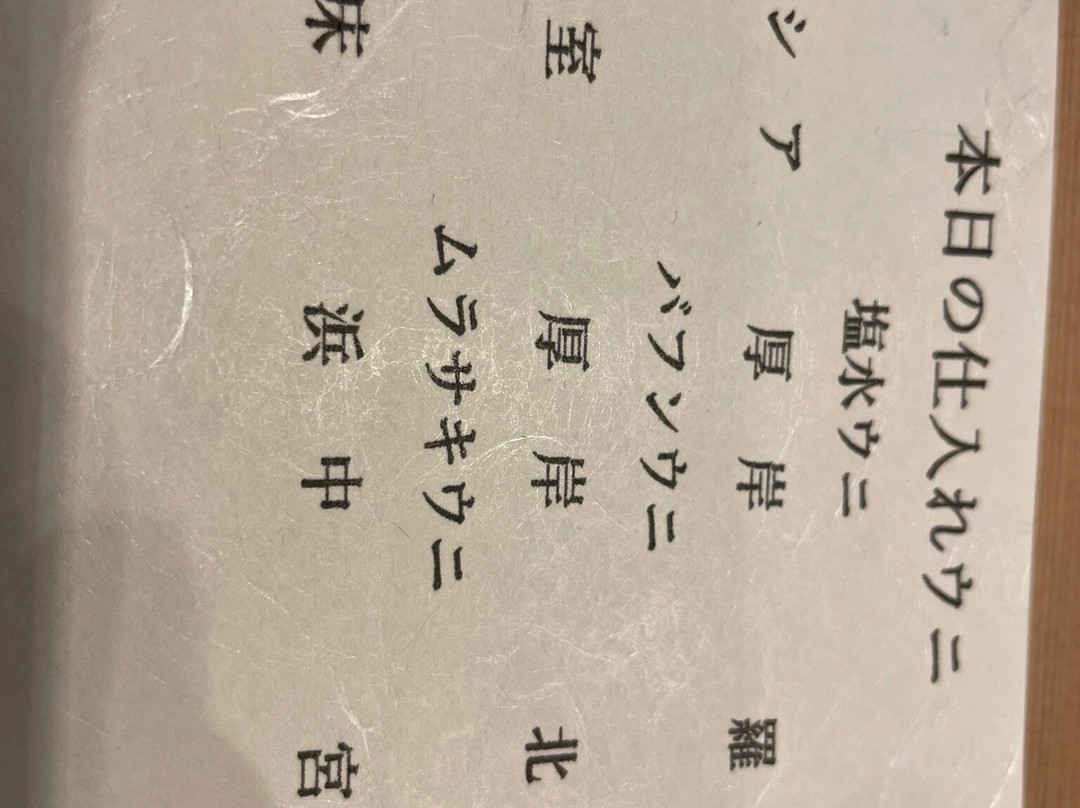 本日の仕入れウニ
塩水ウニ
シア 厚岸 羅
バフンウニ
室 厚岸 北
ムラサキウニ
浜中 宮